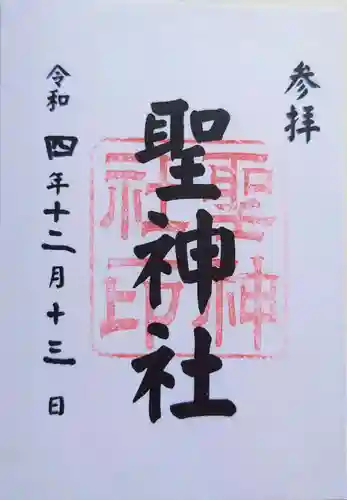 参拝
聖神社
聖神社印
令和四年十二月十三日